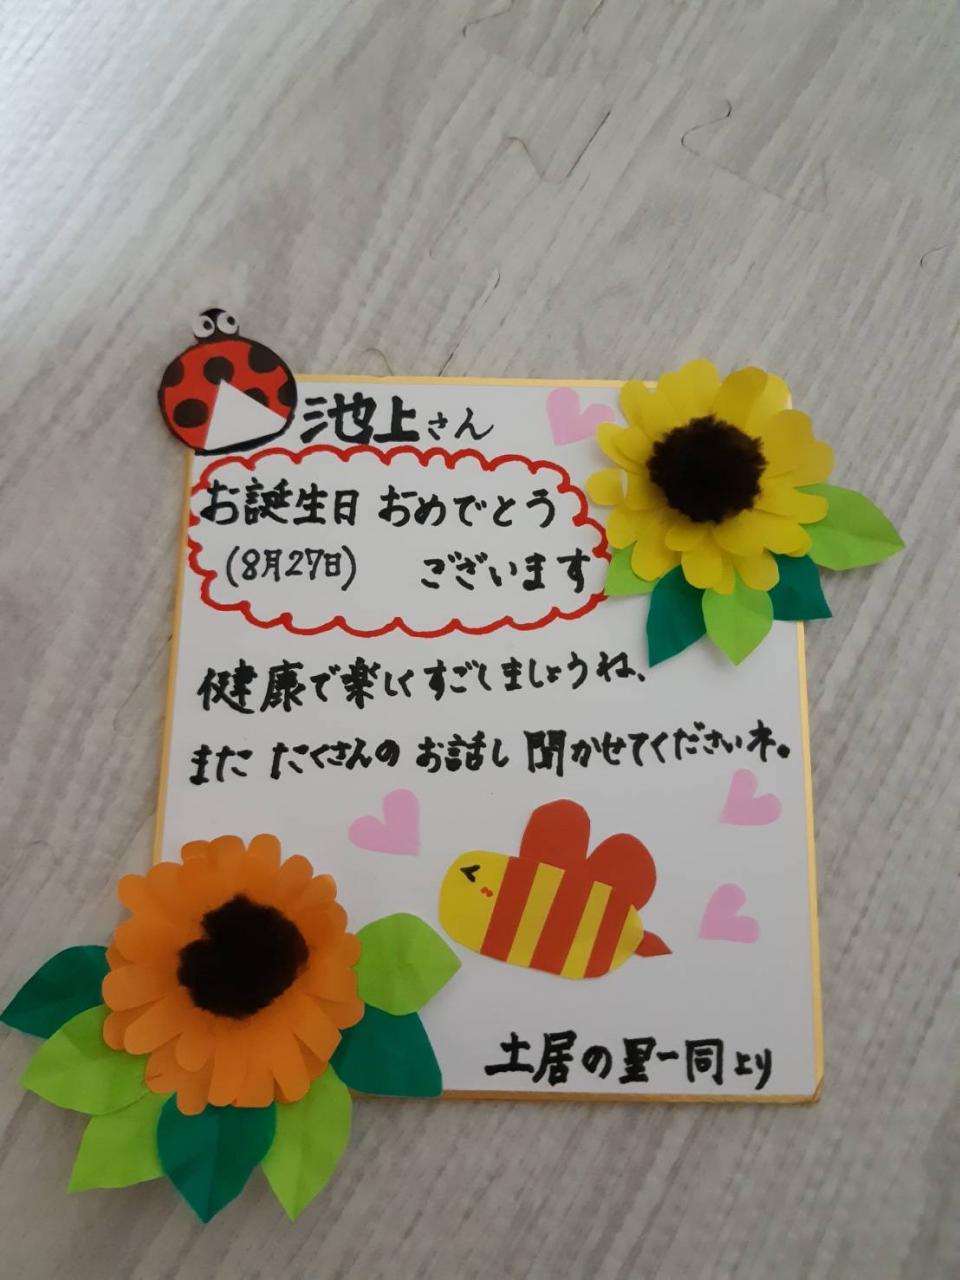 池上さん
お誕生日 おめでとう
(8月27日) ございます
健康で楽しくすごしましょうね、
また たくさんの お話し 聞かせてくださいネ。
土居の里一同より